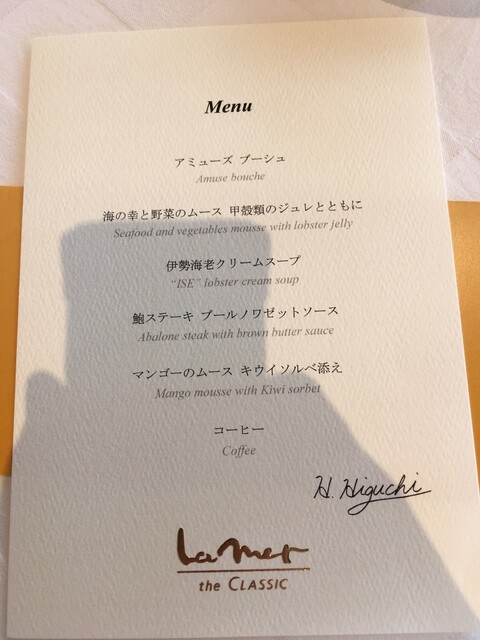 Menu
アミューズ ブーシュ
Amuse bouche
海の幸と野菜のムース 甲殻類のジュレとともに
Seafood and vegetables mousse with lobster jelly
伊勢海老クリームスープ
"ISE" lobster cream soup
鮑ステーキ ブールノワゼットソース
Abalone steak with brown butter sauce
マンゴーのムース キウイソルベ添え
Mango mousse with Kiwi sorbet
コーヒー
Coffee
H. Higuchi
La mer
the CLASSIC